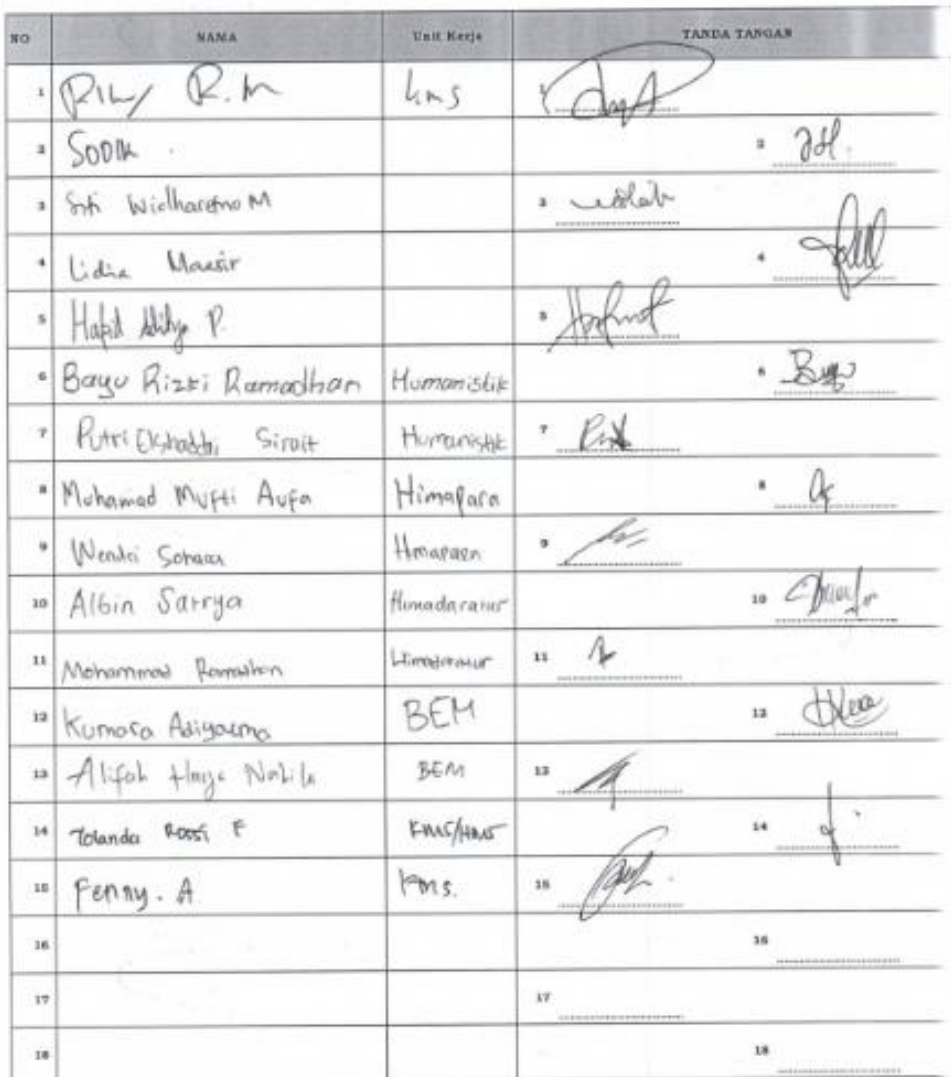 NO NAMA Unit Kerja TANDA TANGAN
1 R.M kms 1
2 SODIK . 2
3 Siti Widharetno M 3
4 Lidia 4
5 Hafid Aditya P. 5
6 Bayu Rizki Ramadhan Humanistik 6
7 Putri Sirait Humanistik 7
8 Mohamad Mufti Aufa Himapara 8
9 Wendi 9
10 Albin Satrya 10
11 Mohammad Ramadhan 11
12 Kumara Adiyasma BEM 12
13 Alifah Nabila BEM 13
14 Yolanda Rossi F KMS/HMS 14
15 Fenny. A KMS. 15
16 16
17 17
18 18